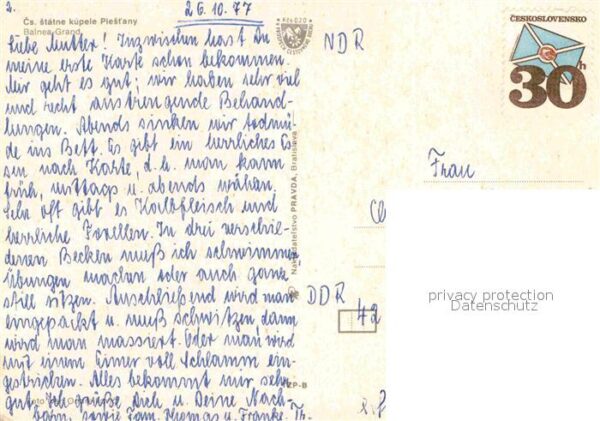 2.
26.10.77
Čs. štátne kúpele Piešťany
Balnea Grand
Liebe Mutter! Inzwischen hast Du
meine erste Karte schon bekommen.
Mir geht es gut; wir haben sehr viel
und recht anstrengende Behand-
lungen. Abends sinken wir todmü-
de ins Bett. Es gibt ein herrliches Es-
sen nach Karte, d.h. man kann
früh, mittags u. abends wählen.
Sehr oft gibt es Kalbfleisch und
herrliche Forellen. In drei verschie-
denen Becken muß ich schwimmen
Übungen machen oder auch ganz
still sitzen. Anschließend wird man
eingepackt u. muß schwitzen, dann
wird man massiert. Oder man wird
mit einem Eimer voll Schlamm ein-
gestrichen. Alles bekommt mir sehr
gut. Ich grüße Dich u. Deine Nach-
barn, sowie Fam. Thomas u. Franke. Th.
Nakladateľstvo PRAVDA, Bratislava
NDR
ČESKOSLOVENSKO
30h
Frau
DDR
42
privacy protection
Datenschutz